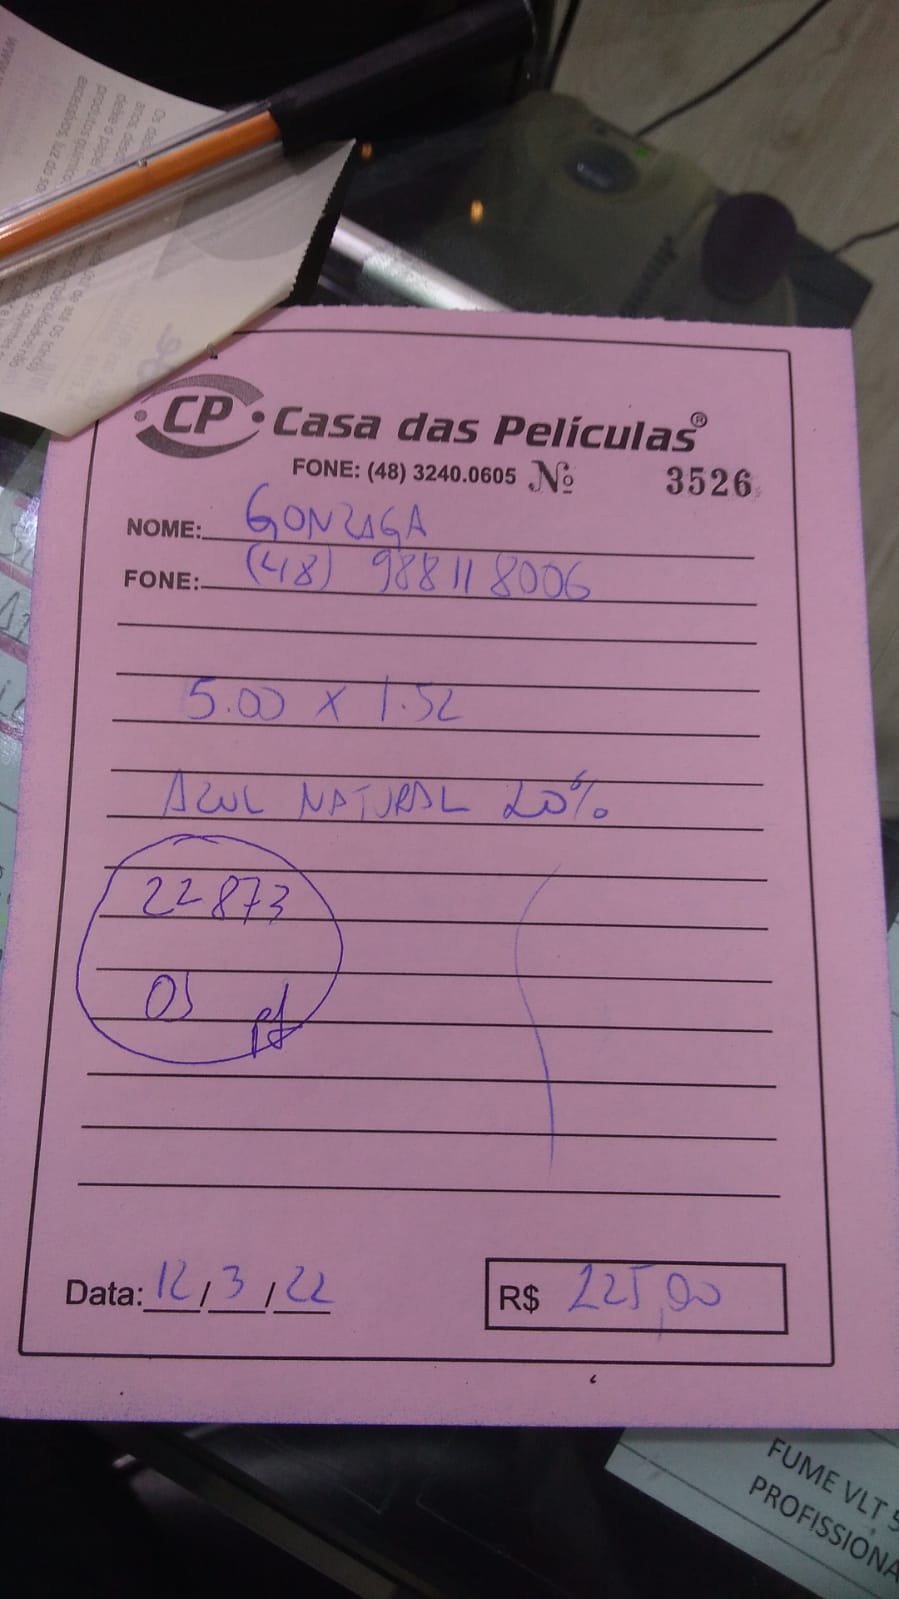 CP Casa das Películas®
FONE: (48) 3240.0605 Nº 3526
NOME: GONZAGA
FONE: (48) 988118006
5.00 x 1.52
AZUL NATURAL 20%
22873
OS
Data: 12/3/22
R$ 225,00
FUME VLT 5
PROFISSIONA